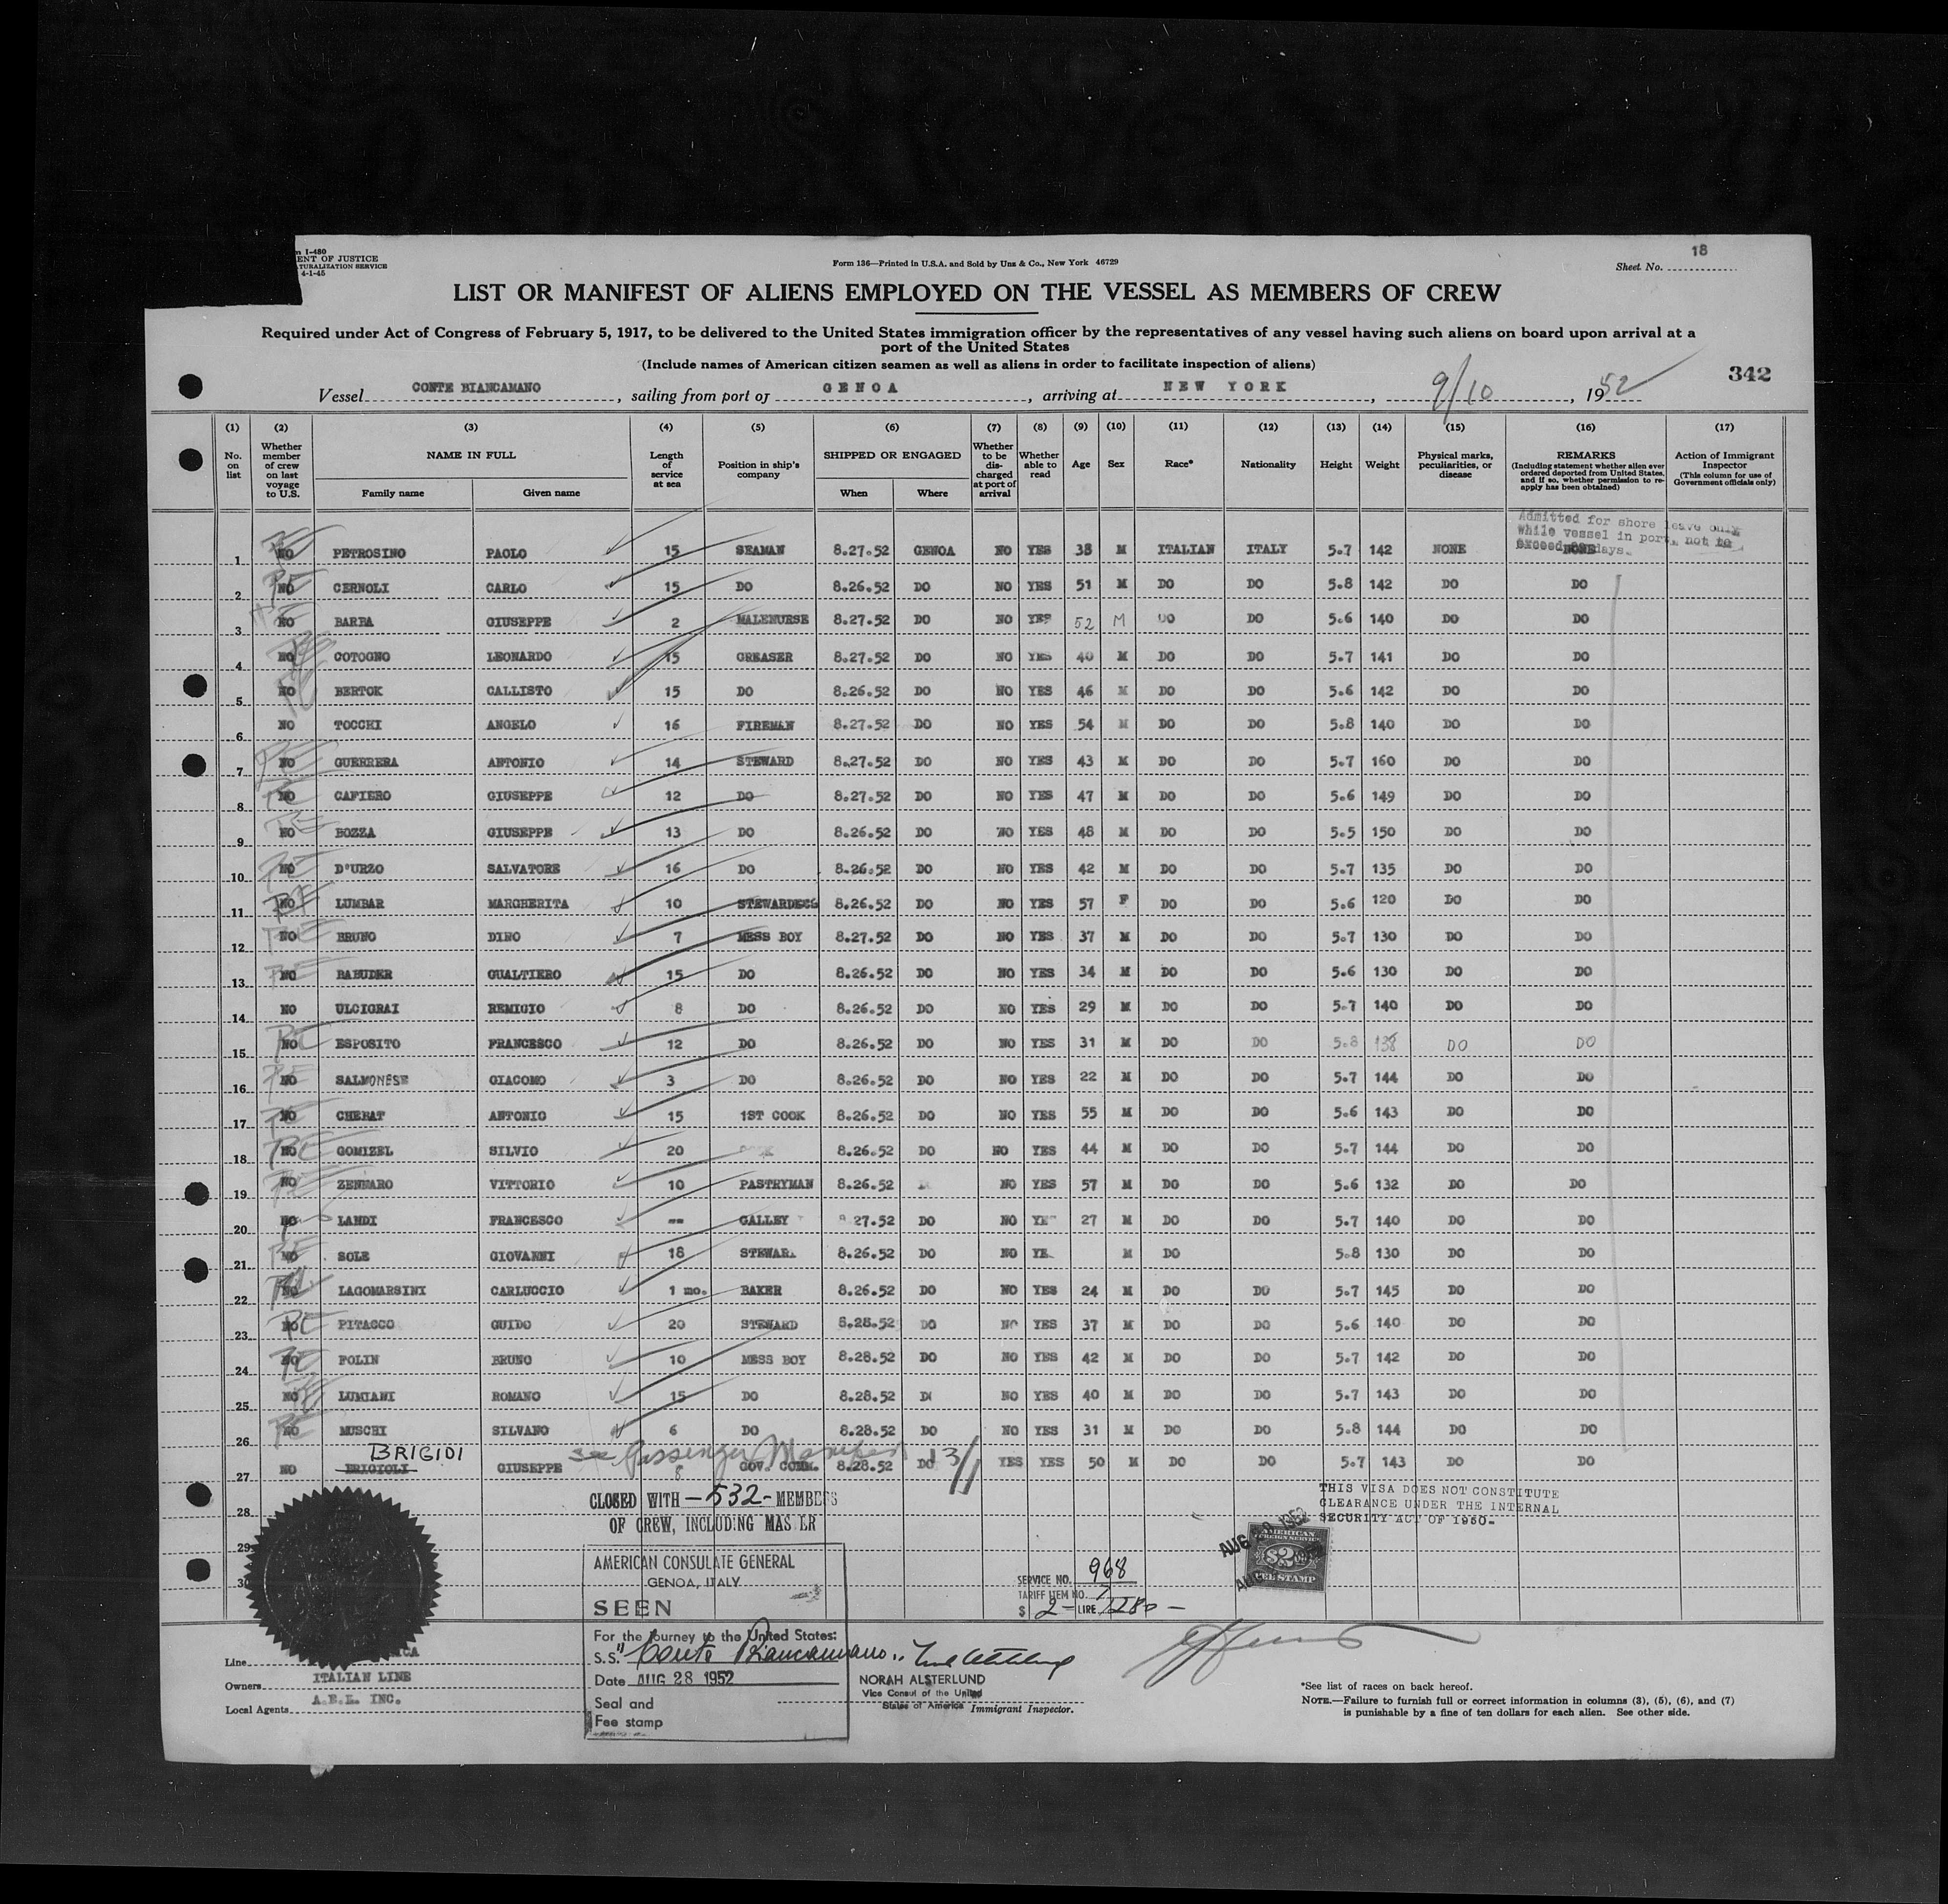 n I-480
ENT OF JUSTICE
TURALIZATION SERVICE
4-1-45
Form 136—Printed in U.S.A. and Sold by Unz & Co., New York 46729
18
Sheet No.
LIST OR MANIFEST OF ALIENS EMPLOYED ON THE VESSEL AS MEMBERS OF CREW
Required under Act of Congress of February 5, 1917, to be delivered to the United States immigration officer by the representatives of any vessel having such aliens on board upon arrival at a
port of the United States
(Include names of American citizen seamen as well as aliens in order to facilitate inspection of aliens)
342
Vessel CONTE BIANCAMANO, sailing from port of GENOA, arriving at NEW YORK, 9/10, 1952
(1) (2) (3) (4) (5) (6) (7) (8) (9) (10) (11) (12) (13) (14) (15) (16) (17)
No. on list
Whether member of crew on last voyage to U.S.
NAME IN FULL
Family name
Given name
Length of service at sea
Position in ship's company
SHIPPED OR ENGAGED
When
Where
Whether to be discharged at port of arrival
Whether able to read
Age
Sex
Race*
Nationality
Height
Weight
Physical marks, peculiarities, or disease
REMARKS
(Including statement whether alien ever ordered deported from United States, and if so, whether permission to re-apply has been obtained)
Action of Immigrant Inspector
(This column for use of Government officials only)
Admitted for shore leave only
while vessel in port, not to
exceed days.
1 NO PETROSINO PAOLO 15 SEAMAN 8.27.52 GENOA NO YES 38 M ITALIAN ITALY 5.7 142 NONE NONE
2 NO CERNOLI CARLO 15 DO 8.26.52 DO NO YES 51 M DO DO 5.8 142 DO DO
3 NO BARBA GIUSEPPE 2 MALENURSE 8.27.52 DO NO YES 52 M DO DO 5.6 140 DO DO
4 NO COTOGNO LEONARDO 15 GREASER 8.27.52 DO NO YES 40 M DO DO 5.7 141 DO DO
5 NO BERTOK CALLISTO 15 DO 8.26.52 DO NO YES 46 M DO DO 5.6 142 DO DO
6 NO TOCCHI ANGELO 16 FIREMAN 8.27.52 DO NO YES 54 M DO DO 5.8 140 DO DO
7 NO GUERRERA ANTONIO 14 STEWARD 8.27.52 DO NO YES 43 M DO DO 5.7 160 DO DO
8 NO CAFIERO GIUSEPPE 12 DO 8.27.52 DO NO YES 47 M DO DO 5.6 149 DO DO
9 NO BOZZA GIUSEPPE 13 DO 8.26.52 DO NO YES 48 M DO DO 5.5 150 DO DO
10 NO D'URZO SALVATORE 16 DO 8.26.52 DO NO YES 42 M DO DO 5.7 135 DO DO
11 NO LUMBAR MARGHERITA 10 STEWARDESS 8.26.52 DO NO YES 57 F DO DO 5.6 120 DO DO
12 NO BRUNO DINO 7 MESS BOY 8.27.52 DO NO YES 37 M DO DO 5.7 130 DO DO
13 NO BABUDER GUALTIERO 15 DO 8.26.52 DO NO YES 34 M DO DO 5.6 130 DO DO
14 NO ULCIGRAI REMIGIO 8 DO 8.26.52 DO NO YES 29 M DO DO 5.7 140 DO DO
15 NO ESPOSITO FRANCESCO 12 DO 8.26.52 DO NO YES 31 M DO DO 5.8 138 DO DO
16 NO SALMONESE GIACOMO 3 DO 8.26.52 DO NO YES 22 M DO DO 5.7 144 DO DO
17 NO CHERAT ANTONIO 15 1ST COOK 8.26.52 DO NO YES 55 M DO DO 5.6 143 DO DO
18 NO GOMIZEL SILVIO 20 8.26.52 DO NO YES 44 M DO DO 5.7 144 DO DO
19 NO ZENNARO VITTORIO 10 PASTRYMAN 8.26.52 NO YES 57 M DO DO 5.6 132 DO DO
20 NO LANDI FRANCESCO -- GALLEY 8.27.52 DO NO YES 27 M DO DO 5.7 140 DO DO
21 NO SOLE GIOVANNI 18 STEWARD 8.26.52 DO NO YE M DO 5.8 130 DO DO
22 NO LAGOMARSINI CARLUCCIO 1 mo. BAKER 8.26.52 DO NO YES 24 M DO DO 5.7 145 DO DO
23 NO PITACCO GUIDO 20 STEWARD 8.28.52 DO NO YES 37 M DO DO 5.6 140 DO DO
24 NO POLIN BRUNO 10 MESS BOY 8.28.52 DO NO YES 42 M DO DO 5.7 142 DO DO
25 NO LUMIANI ROMANO 15 DO 8.28.52 DO NO YES 40 M DO DO 5.7 143 DO DO
26 NO MUSCHI SILVANO 6 DO 8.28.52 DO NO YES 31 M DO DO 5.8 144 DO DO
BRIGIDI see Passenger Manifest 13/1
27 NO BRIGIOLI GIUSEPPE 8 GOV. COMM. 8.28.52 DO YES YES 50 M DO DO 5.7 143 DO DO
28
29
30
CLOSED WITH -532- MEMBERS
OF CREW, INCLUDING MASTER
THIS VISA DOES NOT CONSTITUTE
CLEARANCE UNDER THE INTERNAL
SECURITY ACT OF 1950.
AMERICAN CONSULATE GENERAL
GENOA, ITALY
SEEN
For the journey to the United States:
S.S. "Conte Biancamano"
Date AUG 28 1952
Seal and
Fee stamp
SERVICE NO. 968
TARIFF ITEM NO. 7
$ 2- LIRE 1280-
AMERICAN
FOREIGN SERVICE
$2
FEE STAMP
NORAH ALSTERLUND
Vice Consul of the United
States of America
Immigrant Inspector.
Line
Owners ITALIAN LINE
Local Agents A.B.L. INC.
*See list of races on back hereof.
NOTE.—Failure to furnish full or correct information in columns (3), (5), (6), and (7)
is punishable by a fine of ten dollars for each alien. See other side.